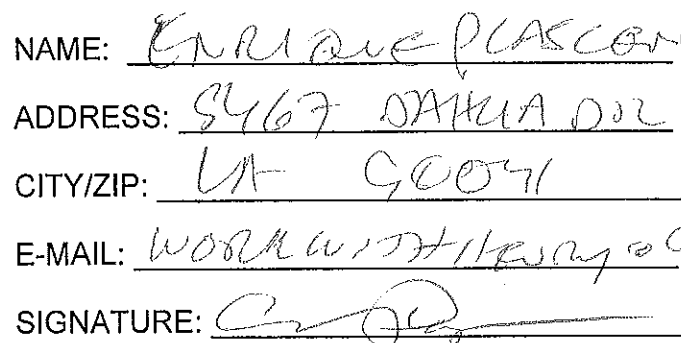 NAME: ENRIQUE PLASCEN
ADDRESS: 5467 DAHLIA DR
CITY/ZIP: LA 90041
E-MAIL: WORKWITHHENRY
SIGNATURE: